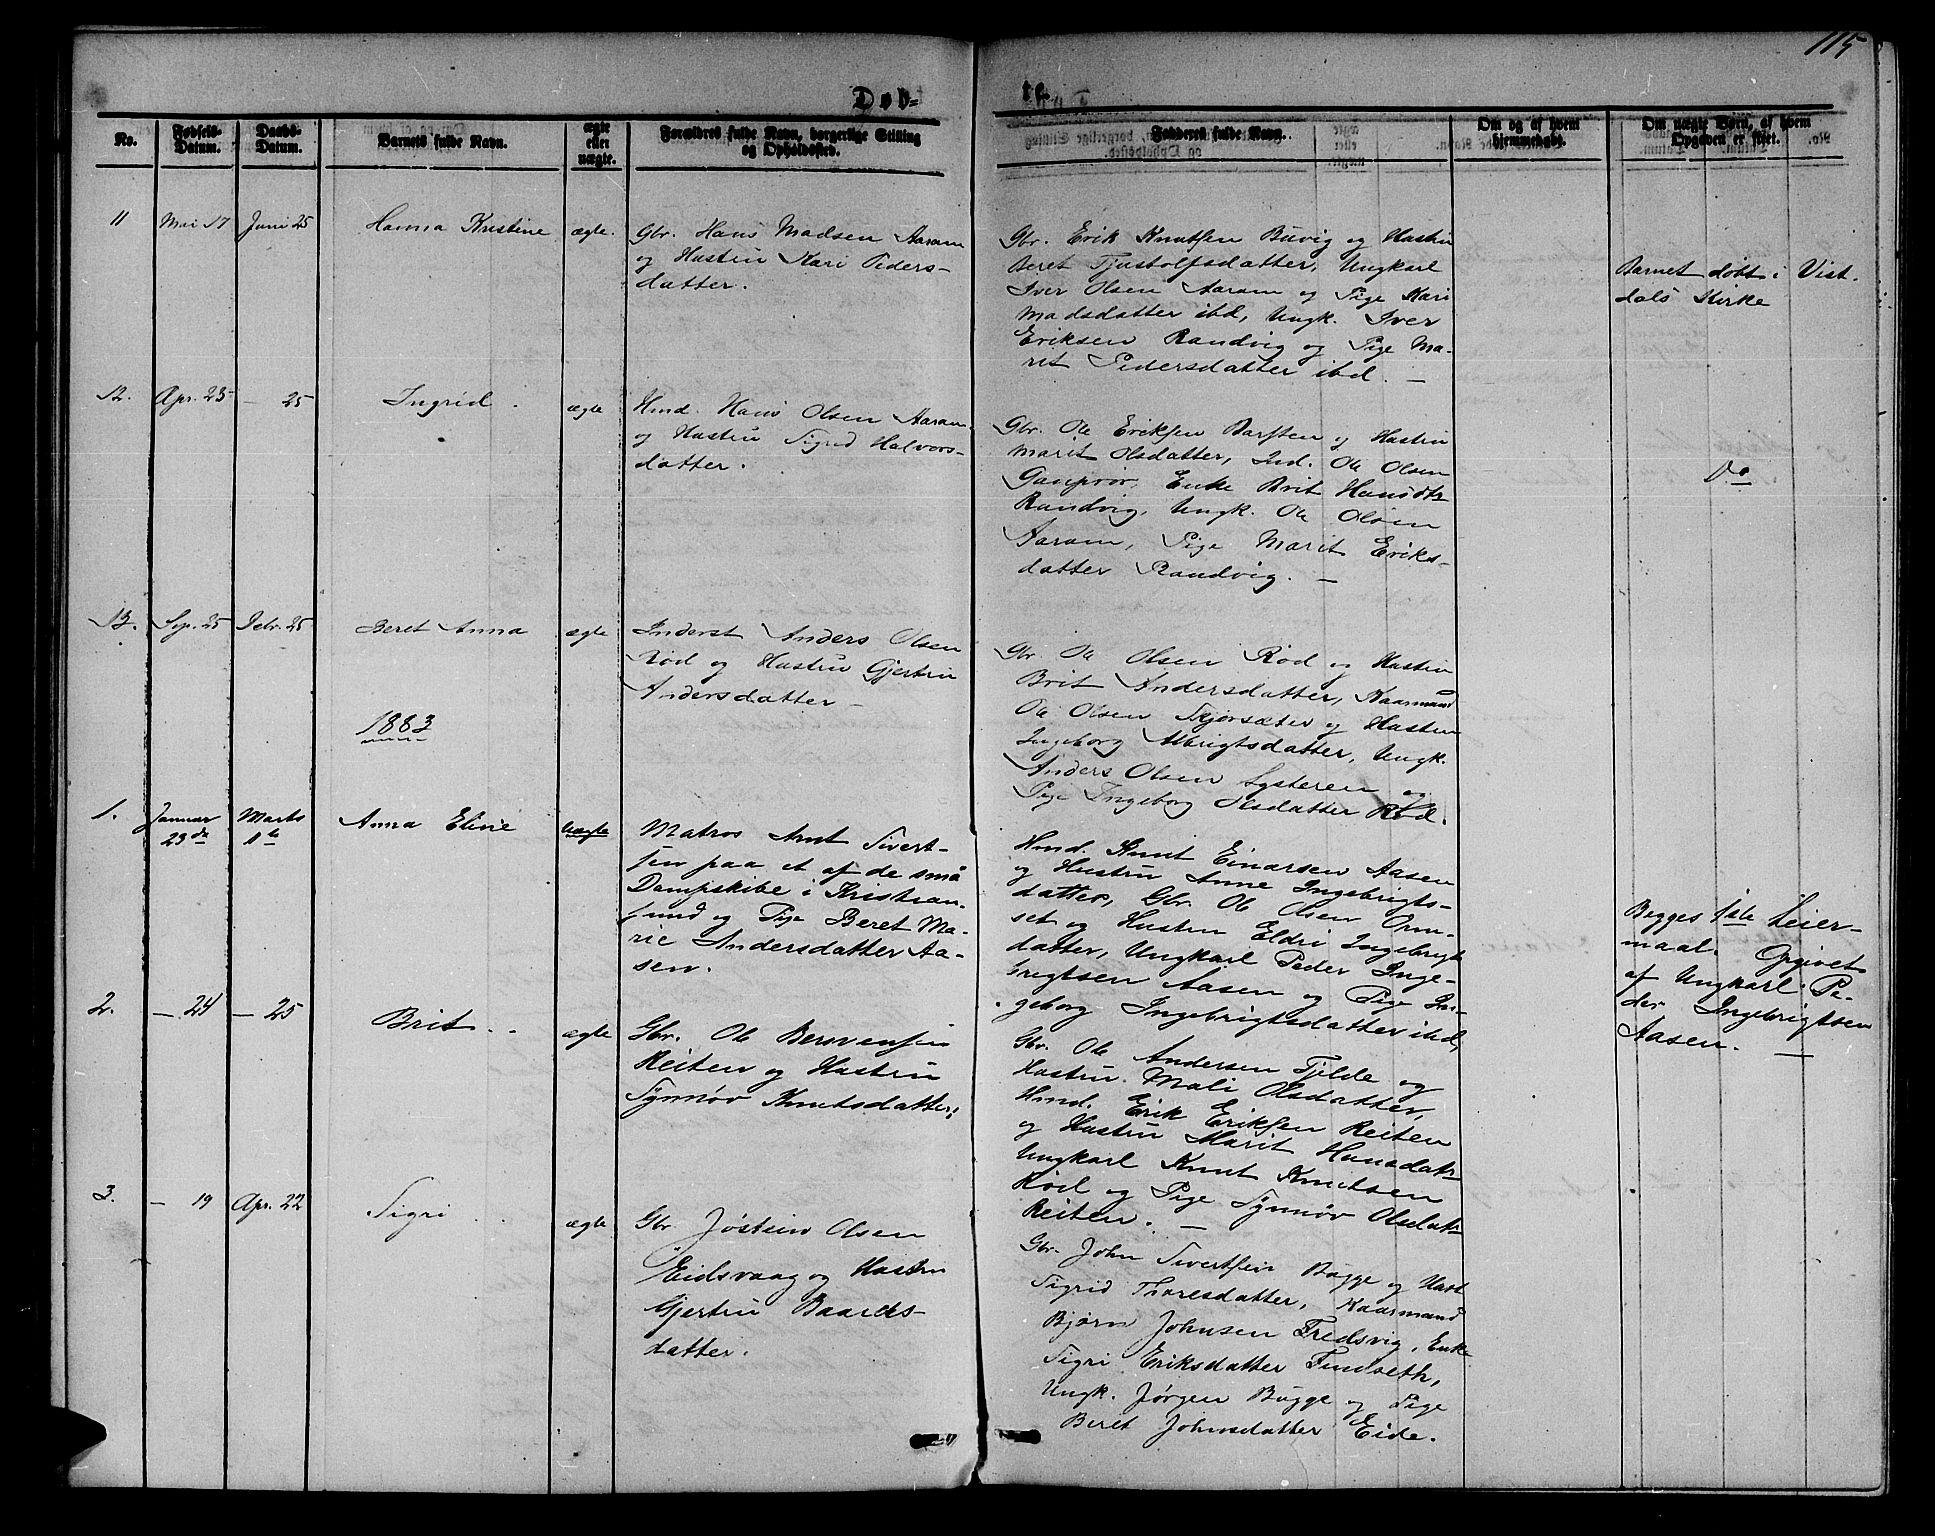 115
Døb-
te.
No.
Fødsels-
Datum.
Daabs-
Datum.
Barnets fulde Navn.
ægte
eller
uægte.
Forældres fulde Navn, borgerlige Stilling
og Opholdssted.
Fadderes fulde Navn.
Om og af hvem
hjemmedøbt.
Om uægte Børn, af hvem
Opgaven er skeet.
11
Mai 17
Juni 25
Hanna Kristine
ægte.
Gbr. Hans Madsen Aaram
og Hustru Kari Peders-
datter.
Gbr. Erik Knutsen Buvig og Hustru
Beret Tjustolfsdatter, Ungkarl
Iver Olsen Aaram og Pige Kari
Madsdatter ibd, Ungk. Iver
Eriksen Randvig og Pige Ma-
rit Pedersdatter ibd. —
Barnet døbt i Vist-
dals Kirke
12.
Apr. 23
— 25
Ingrid.
ægte
Hmd. Hans Olsen Aaram
og Hustru Sigrid Halvors-
datter.
Gbr. Ole Eriksen Barsten og Hustru
Marit Olsdatter, Ind. Ole Olsen
Enke Brit Hansdtr
Randvig, Ungk. Ole Olsen
Aaram, Pige Marit Eriks-
datter Randvig. —
Do
13.
Sep. 25
Debr. 25
Beret Anna
ægte
Inderst Anders Olsen
Rød og Hustru Gjertru
Andersdatter —
Gbr. Ole Olsen Rød og Hustru
Brit Andersdatter, Kaarmand
Ole Olsen Skjørsæter og Hustru
Ingeborg Albrigtsdatter, Ungk.
Anders Olsen Lysteren og
Pige Ingeborg Olsdatter Rød.
1883
1.
Januar
23de
Marts
1te
Anna Eline
uægte
Matros Arnt Sivert-
sen paa et af de små
Dampskibe i Kristian-
sund og Pige Beret Ma-
rie Andersdatter Aa-
sen.
Hmd. Knut Einarsen Aasen
og Hustru Anne Ingebrigts-
datter, Gbr. Ole Olsen Orm-
set og Hustru Eldri Ingebrigt
datter, Ungkarl Peder Inge-
brigtsen Aasen og Pige In-
geborg Ingebrigtsdatter ibd,
Begges 1ste Leier-
maal. Opgivet
af Ungkarl Pe-
der Ingebrigtsen
Aasen. —
2.
— 24
— 25
Brit
ægte
Gbr. Ole Bersvensen
Reiten og Hustru
Synnøv Knutsdatter;
Gbr. Ole Andersen Tjelde og
Hustru Mali Olsdatter,
Hmd. Erik Eriksen Reiten
og Hustru Marit Hansdatr
Ungkarl Knut Knutsen
Rød og Pige Synnøv Olsdatr
Reiten. —
3.
— 19
Apr. 22
Sigri
ægte
Gbr Jøstein Olsen
Eidsvaag og Hustru
Gjertru Baards-
datter.
Gbr. John Sivertsen Bugge og Hust
Sigrid Thoresdatter, Kaarmand
Bjørn Johnsen Fredsvig, Enke
Sigri Eriksdatter Finsæth,
Ungk. Jørgen Bugge og Pige
Beret Johnsdatter Eide.